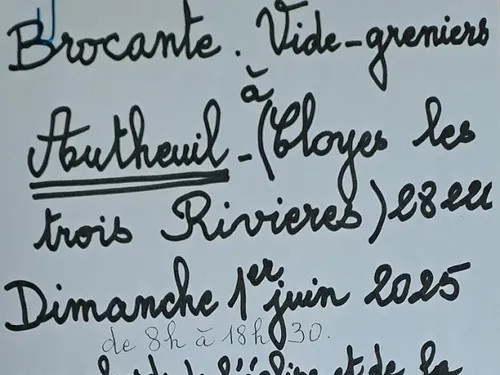 Brocante. Vide-greniers
à
Autheuil - (Cloyes les
trois Rivieres) 28220
Dimanche 1er juin 2025
de 8h à 18h30.
l'église et de la